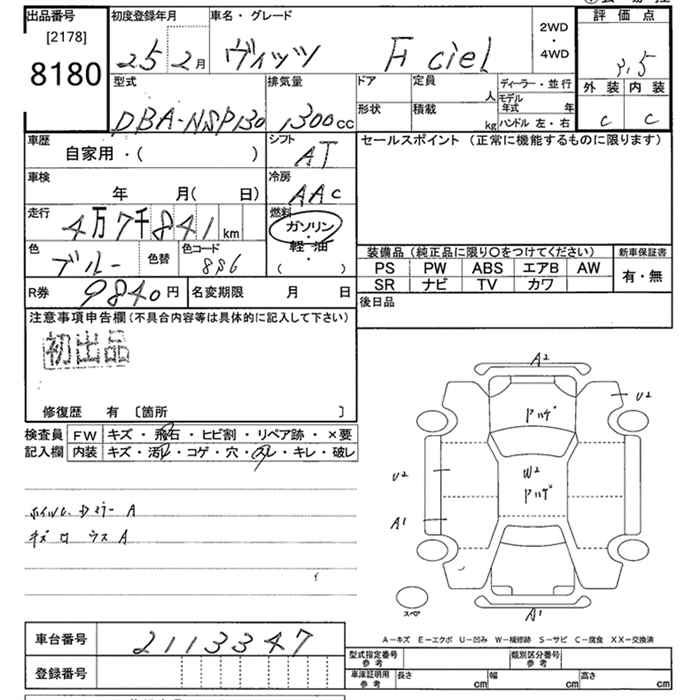 出品番号 初度登録年月 車名・グレード 2WD・4WD 評価点
[2178]
8180
25 2月 ヴィッツ F ciel 3.5
型式 排気量 ドア 定員 人 ディーラー・並行 外装 内装
DBA-NSP130 1300cc 形状 積載 kg モデル年式 年 ハンドル 左・右 C C
車歴 自家用・( ) シフト AT セールスポイント (正常に機能するものに限ります)
車検 年 月( 日) 冷房 AAC
走行 4万7千841km 燃料 ガソリン・軽油 ( )
色 ブルー 色替 色コード 8S6
装備品 (純正品に限り〇をつけてください) 新車保証書
PS PW ABS エアB AW 有・無
SR ナビ TV カワ
R券 9840円 名変期限 月 日 後日品
注意事項申告欄(不具合内容等は具体的に記入して下さい)
初出品
修復歴 有 〔箇所 〕
検査員記入欄 FW キズ・飛石・ヒビ割・リペア跡・×要
内装 キズ・汚レ・コゲ・穴・スレ・キレ・破レ
A2
U2
アハゲ
W2
アハゲ
U2
A1
ホイル、Dミラー A
キズ ロ ウス A
スペア
A1
A-キズ E-エクボ U-凹み W-補修跡 S-サビ C-腐食 XX-交換済
車台番号 2113347
型式指定番号 参考 類別区分番号 参考
登録番号 車庫証明用 参考 長さ cm 幅 cm 高さ cm